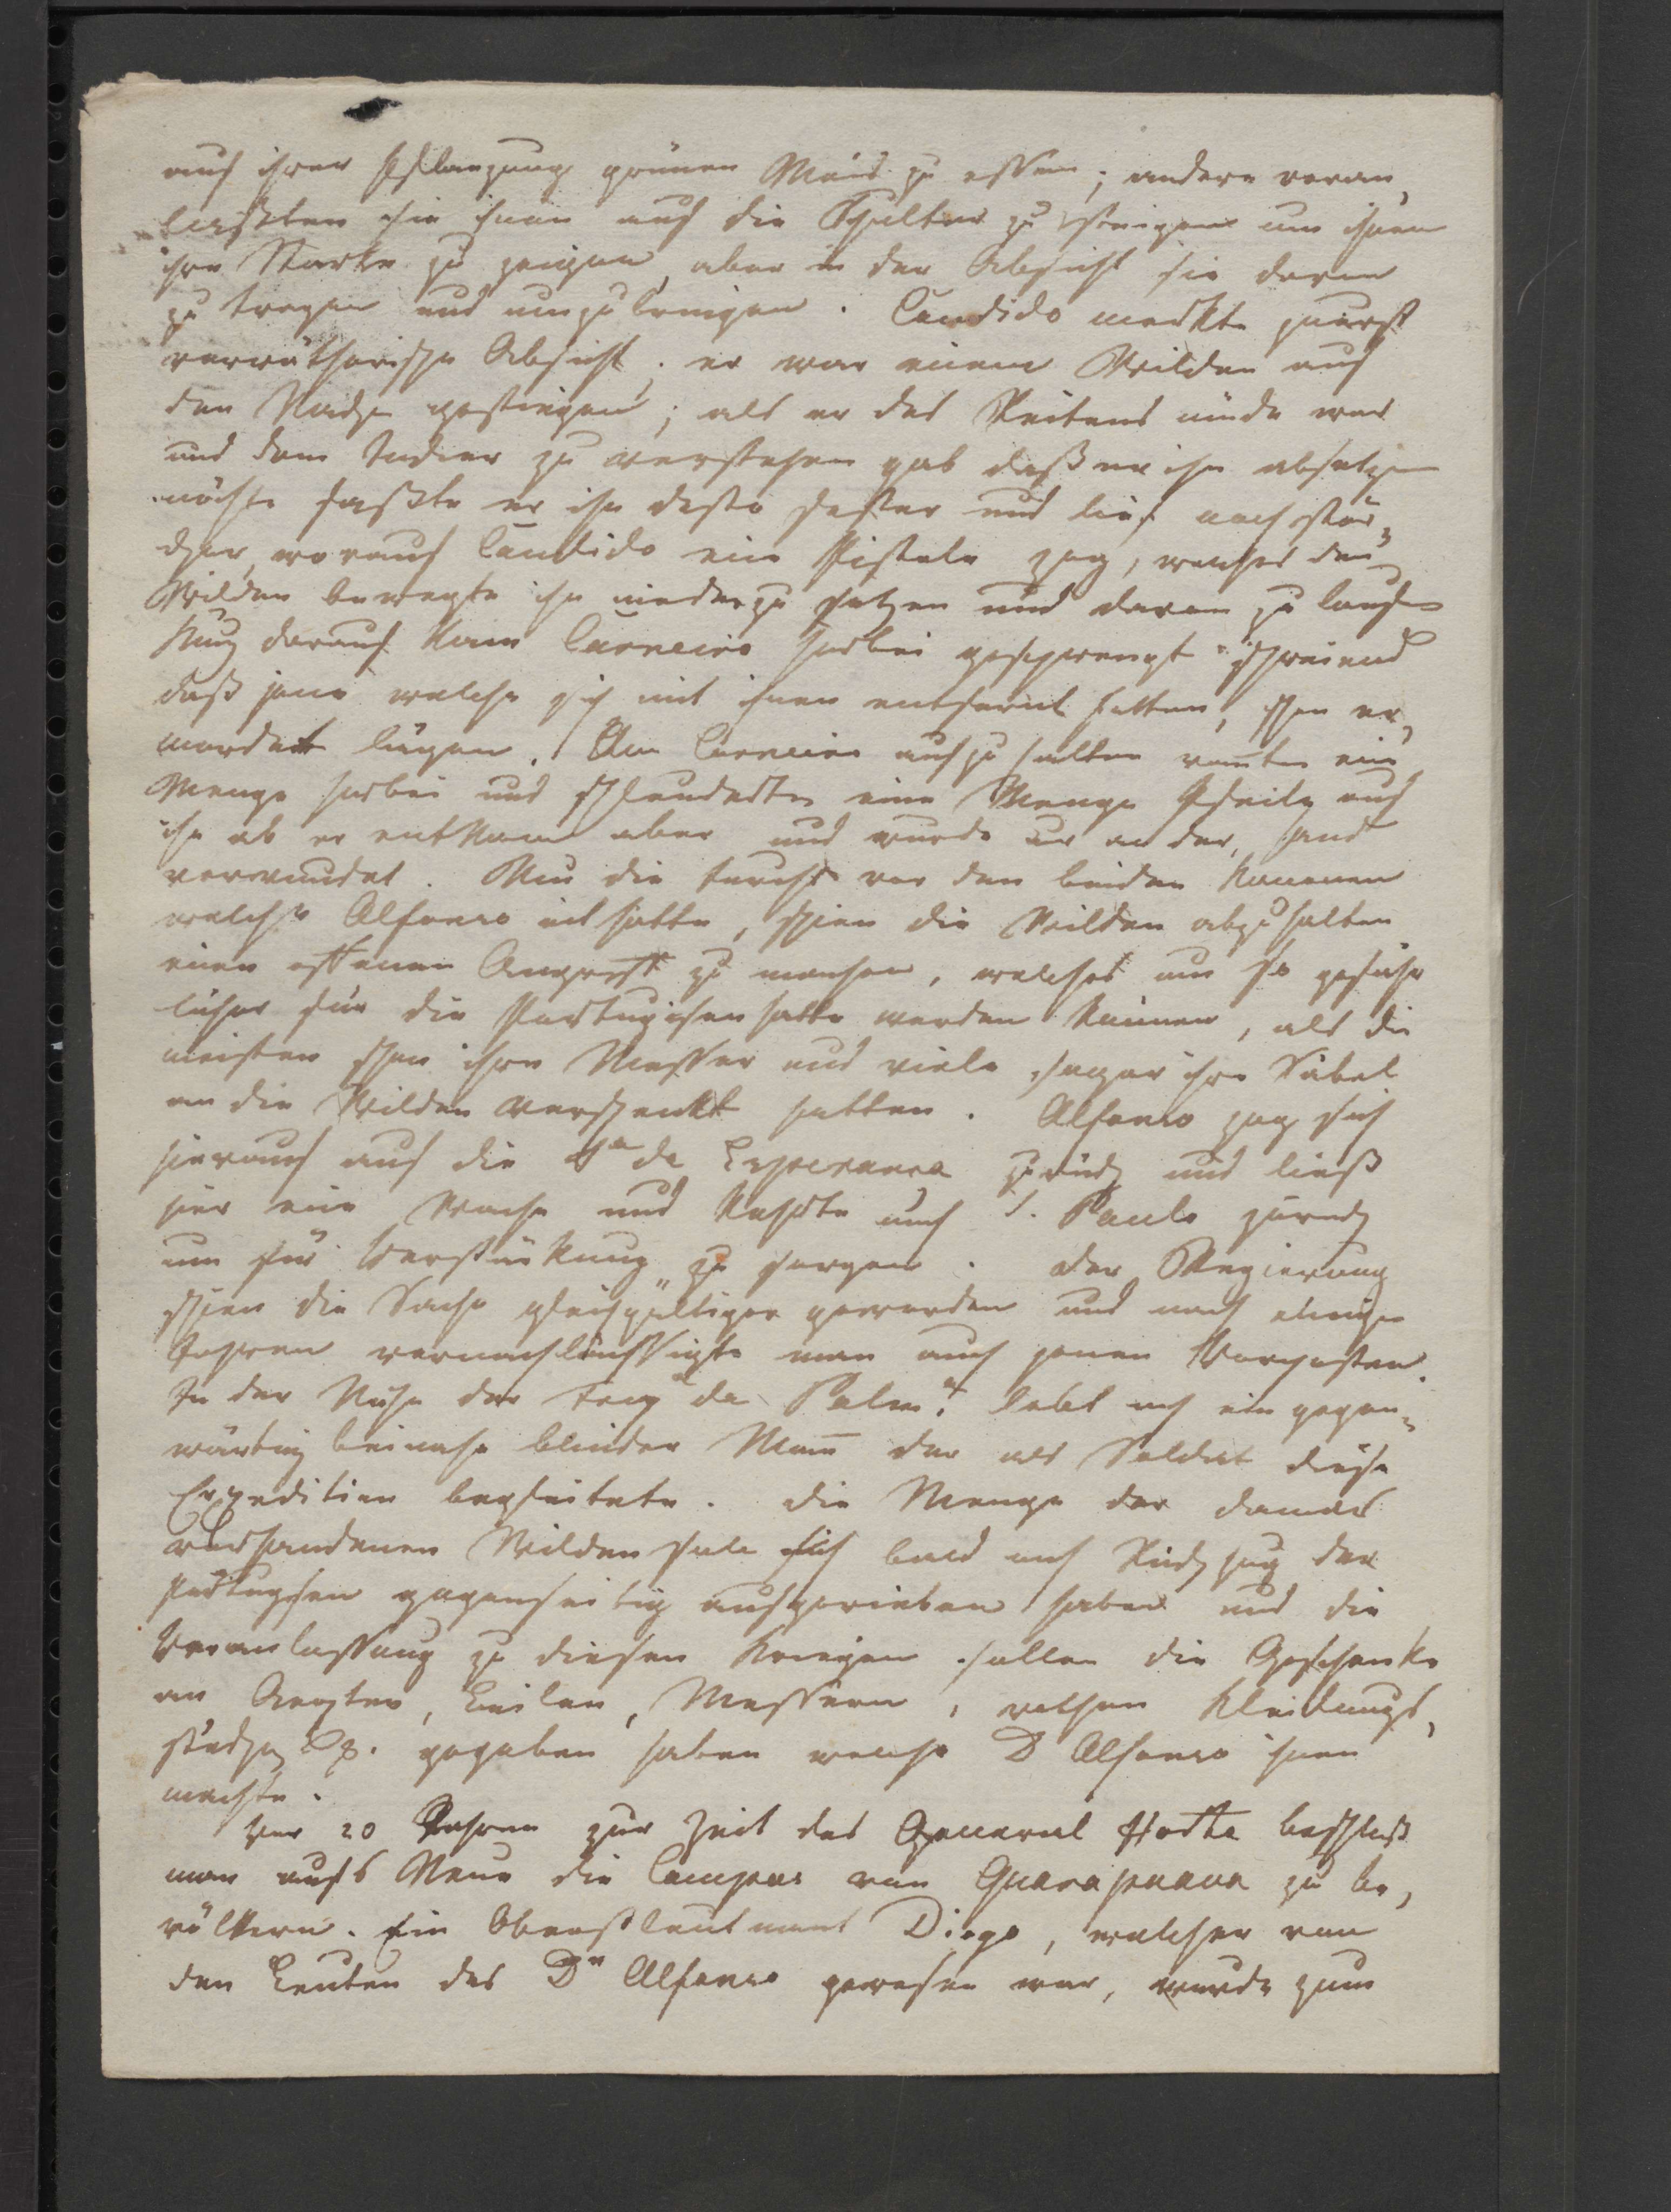 auf ihrer Pflanzung grünen Mais zu essen; andere veran,
laßten sie ihnen auf die Schulter zu steigen um ihnen
ihre Starke zu zeigen, aber in der Absicht sie davon
zu tragen und umzubringen. Candido merkte zuerst
verrätherische Absicht. er war einem Wilden auf
den Nacken gestiegen; als er des Reitens müde war
und dem Indier zu verstehen gab daß er ihn absetzen
möchte faßte er ihn desto fester und lief noch stär„
cker, worauf Candido eine Pistole zog, welches den
Wilden bewegte ihn niederzu setzen und davon zu laufen
Kurz darauf kam Carneiro herbei gesprengt schreiend
daß jene welche sich mit ihnen entfernt hatten, schon er„
mordet lägen. Um Carneiro aufzuhalten rannten eine
Menge herbei und schleuderten eine Menge Pfeile auf
ihn ab er entkam aber und wurde nur an der Hand
verwundet. Nur die Furcht vor den beiden Kanonen
welche Alfonso mit hatte, schien die Wilden abzuhalten
einen offenen Angriff zu machen, welcher um so gefähr
licher für die Portugisen hatte werden können, als die
meisten schon ihre Messer und viele sogar ihre Säbel
an die Wilden verschenkt hatten. Alfonso zog sich
hierauf auf die Sa da Esperanca zurück und ließ
hier eine Wache und kehrte nach S. Paulo zurück
um für Verstärkung zu sorgen. Der Regierung
schien die Sache gleichgültiger geworden und nach einigen
Jahren vernachlässigte man auch jenen Vorposten.
In der Nähe der Freg da Palma lebt noch ein gegen„
wärtig beinahe blinder Mann der als Soldat diese
Expedition begleitete. Die Menge der damals
vorhandenen Wilden soll sich bald nach Rückzug der
Portugisen gegenseitig aufgerieben haben und die
Veranlassung zu diesen Kriegen sollen die Geschenke
an Aexten, Beilen, Messern, rothen Kleidungs„
stücken gegeben haben welche D Alfonso ihnen
machte.
Vor 20 Jahren zur Zeit des General Horta beschloß
man aufs Neue die Campos von Guarapuava zu be„
völkern. Ein Oberstleutnant Diogo, welcher von
den Leuten des Dn Alfonso gewesen war, wurde zum